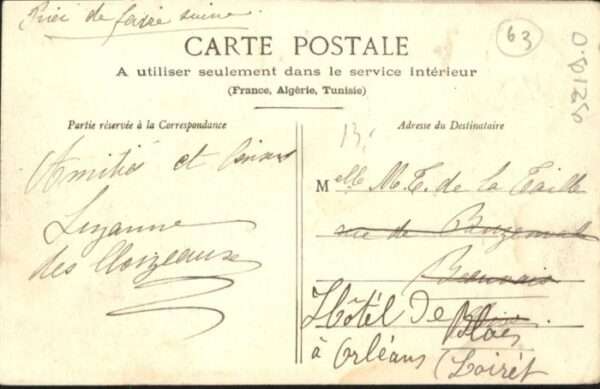 Prière de faire suivre
63
0.81250
CARTE POSTALE
A utiliser seulement dans le service intérieur
(France, Algérie, Tunisie)
Partie réservée à la Correspondance
Adresse du Destinataire
Amitiés et
Suzanne
des Cloizeaux
Melle M.T. de la Taille
rue de
Beauvais
Hôtel De Blois
à Orléans
(Loiret)